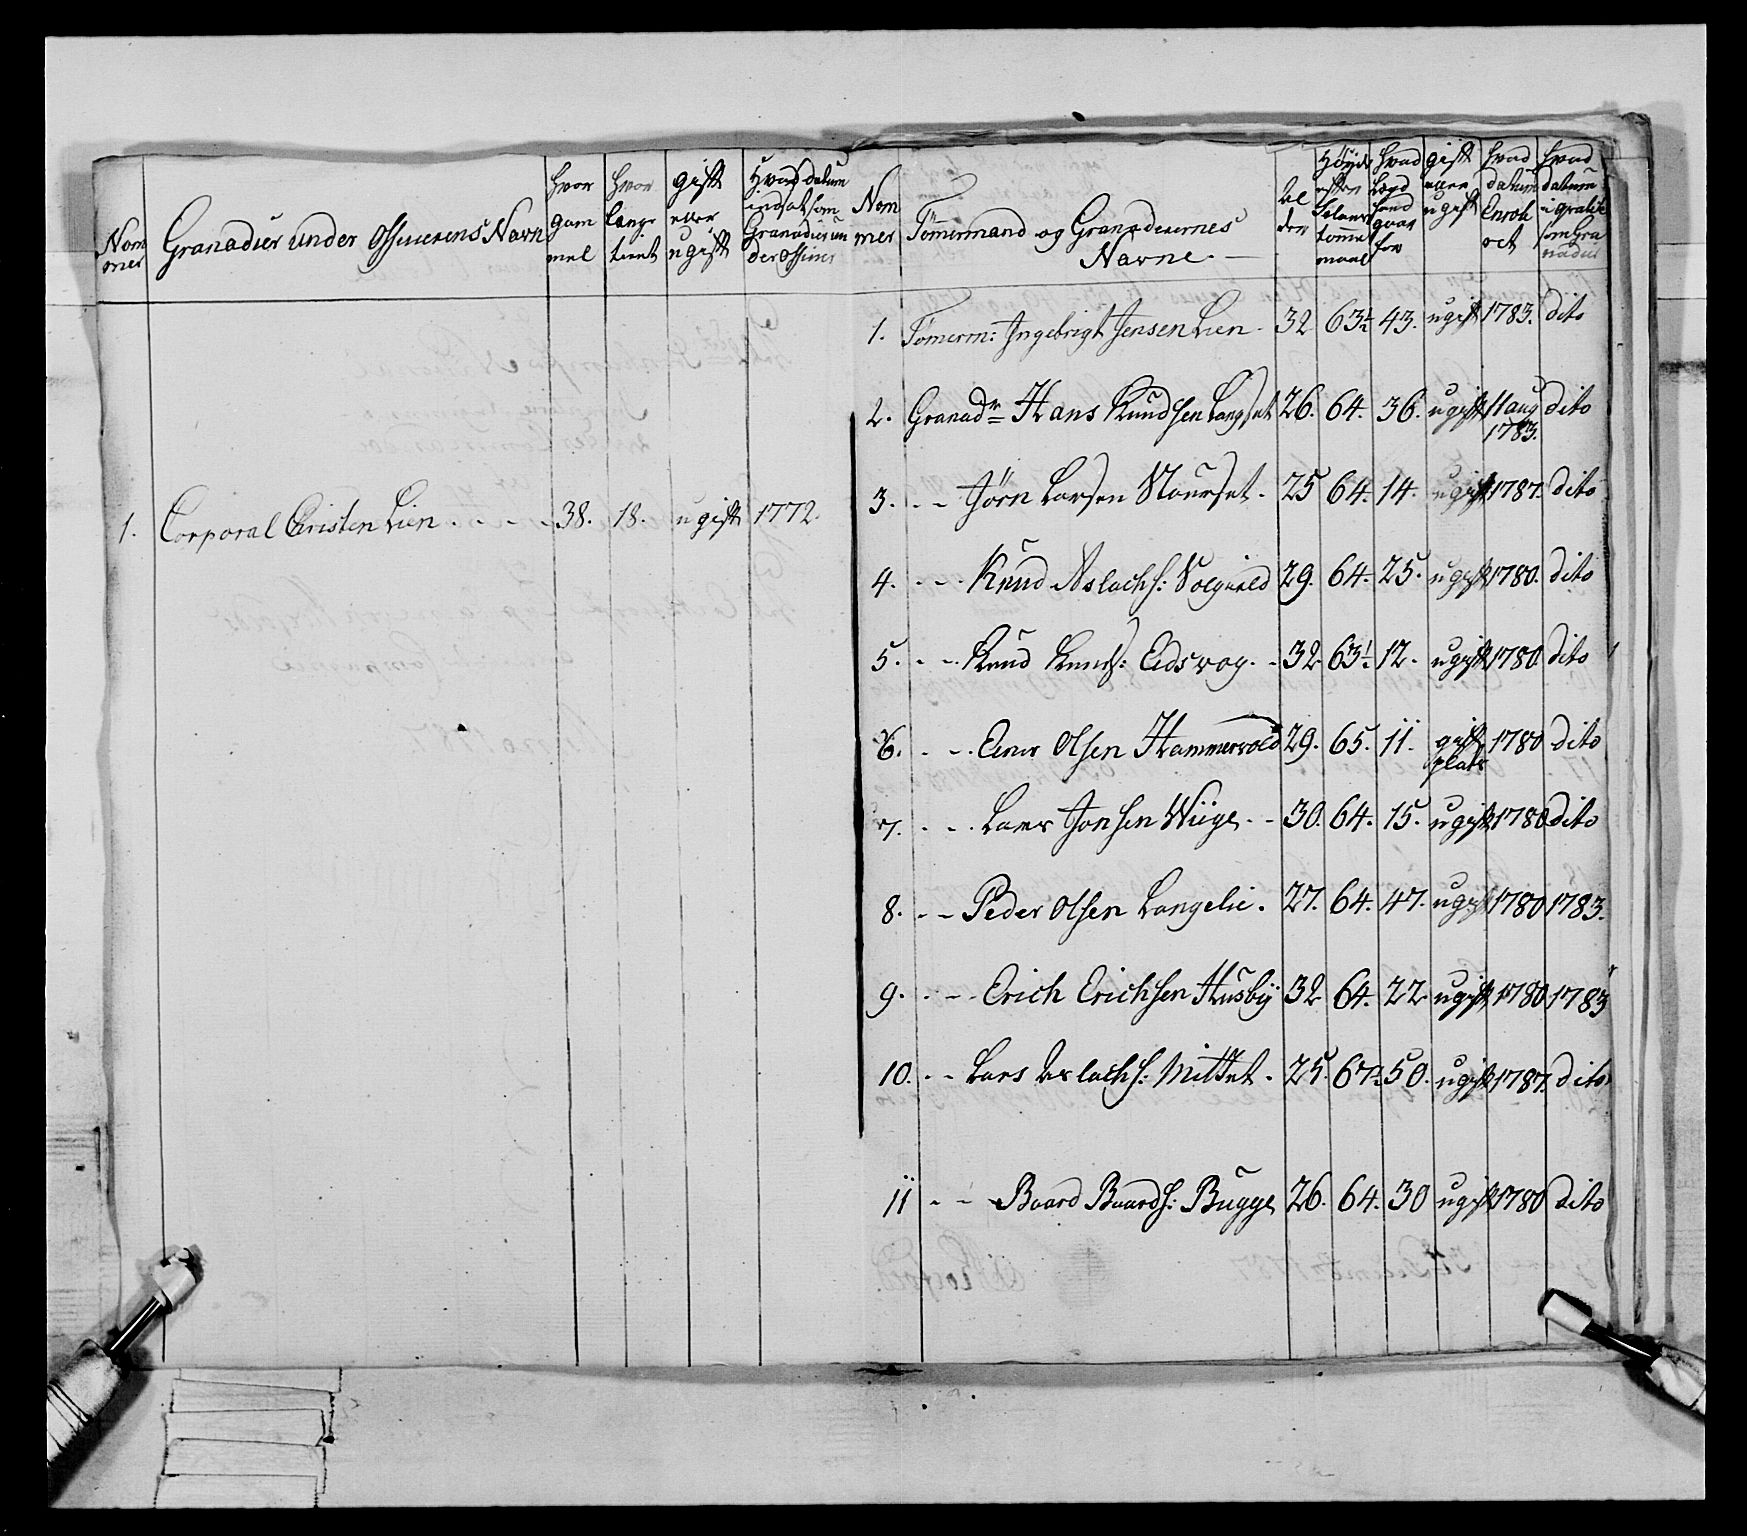 Nom
mer
Granadier under Officerens Navn
hvor
gam
mel
hvor
længe
tient
gift
eller
ugift
Hvad datum
indsat som
Granadier un
der Officier
1. Corporal Christen Lien . . . . 38. 18. ugift 1772.
Nom
mer
Tömermand og Granaderernes
Navne.
al
der
Höyde
efter
tomme
maal
hvad
Lægd
hand
gaar
for
gift
eller
ugift
hvad
datum
Enroh
ert
hvad
datum
som Gra
nadier
1. Tömerm: Ingebrigt Jensen Lien. 32 63½ 43. ugift 1783. dito
2. Granadr Hans Knudsen Langset 26. 64. 36. ugift 11 aug dito
1783.
3. - - Jörn Larsen Nourset. 25 64. 14. ugift 1787. dito
4. - - Knud Aslachs: Solgield 29. 64. 25. ugift 1780. dito
5. - - Knud Knuds: Eidsvog. - 32 63½ 12. ugift 1780 dito
6. - - Einer Olsen Hammervold 29. 65. 11. gift 1780 dito
plads
7. - - Lars Jonsen Wiige. - 30. 64. 15. ugift 1780 dito
8. - - Peder Olsen Langelie. 27. 64. 47. ugift 1780 1783.
9. - - Erich Erichsen Husbÿ 32 64. 22 ugift 1780 1783
10. - - Lars Aslachs: Mittet. 25. 67½ 50. ugift 1787. dito
11 - - Baard Baards: Bugge 26. 64. 30 ugift 1780 dito